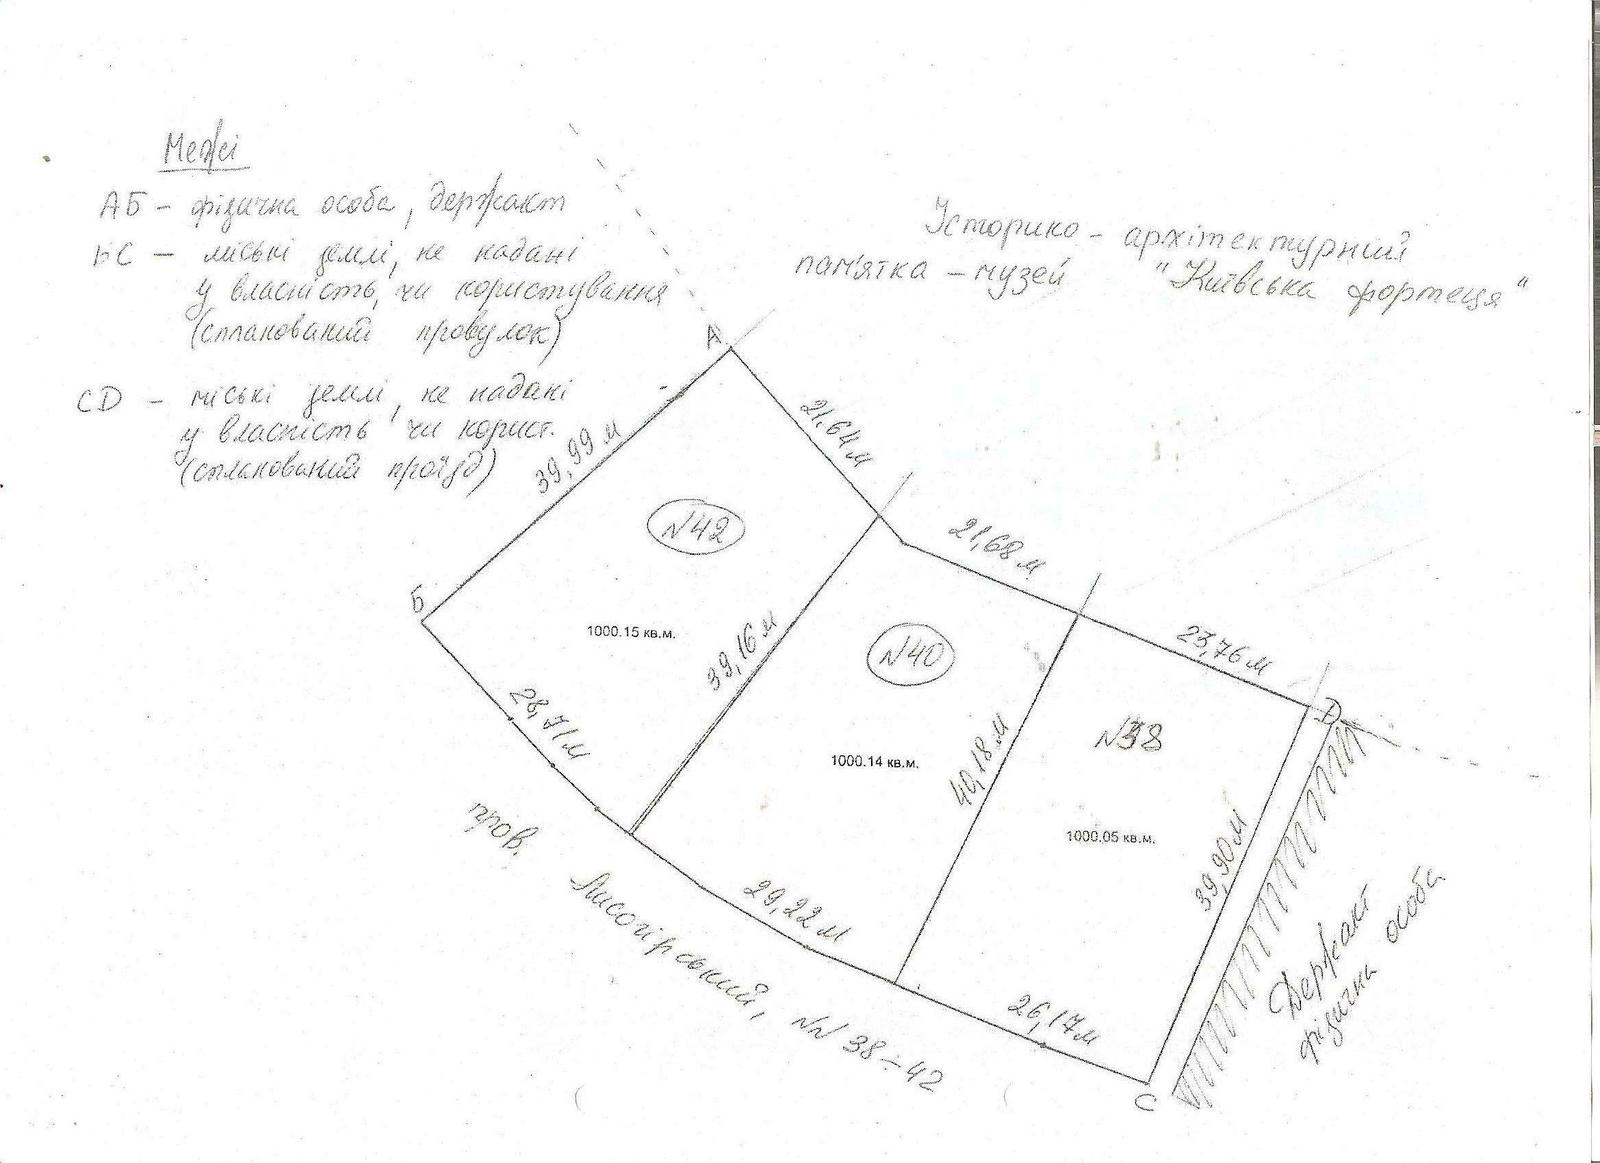 Межі
АБ – фізична особа, держакт
БС – міські землі, не надані
у власність, чи користування
(спланований провулок)
СD – міські землі, не надані
у власність чи корист.
(спланований проїзд)
Історико – архітектурний
пам'ятка – музей "Київська фортеця"
А
21,64 м
39,99 м
N42
21,68 м
Б
1000.15 кв.м.
39,16 м
N40
23,76 м
D
28,71 м
1000.14 кв.м.
40,18 м
N38
1000.05 кв.м.
39,90 м
29,22 м
26,17 м
С
пров. Лисогірський, NN 38÷42
Держакт
фізична особа